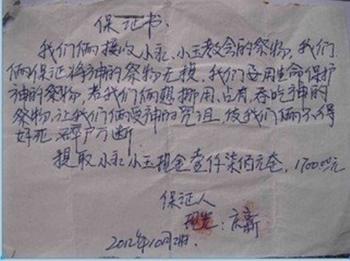 保证书.
我们俩接收小永、小玉教会的祭物,我们
俩保证将神的祭物无损,我们要用生命保护
神的祭物,若我们俩想挪用、占有、吞吃神的
祭物,让我们俩受神的咒诅,使我们俩不得
好死 碎尸万断.
提取小永 小玉现金壹仟柒佰元套, 1700.00元
保证人
: 高新
2012年10月2日.